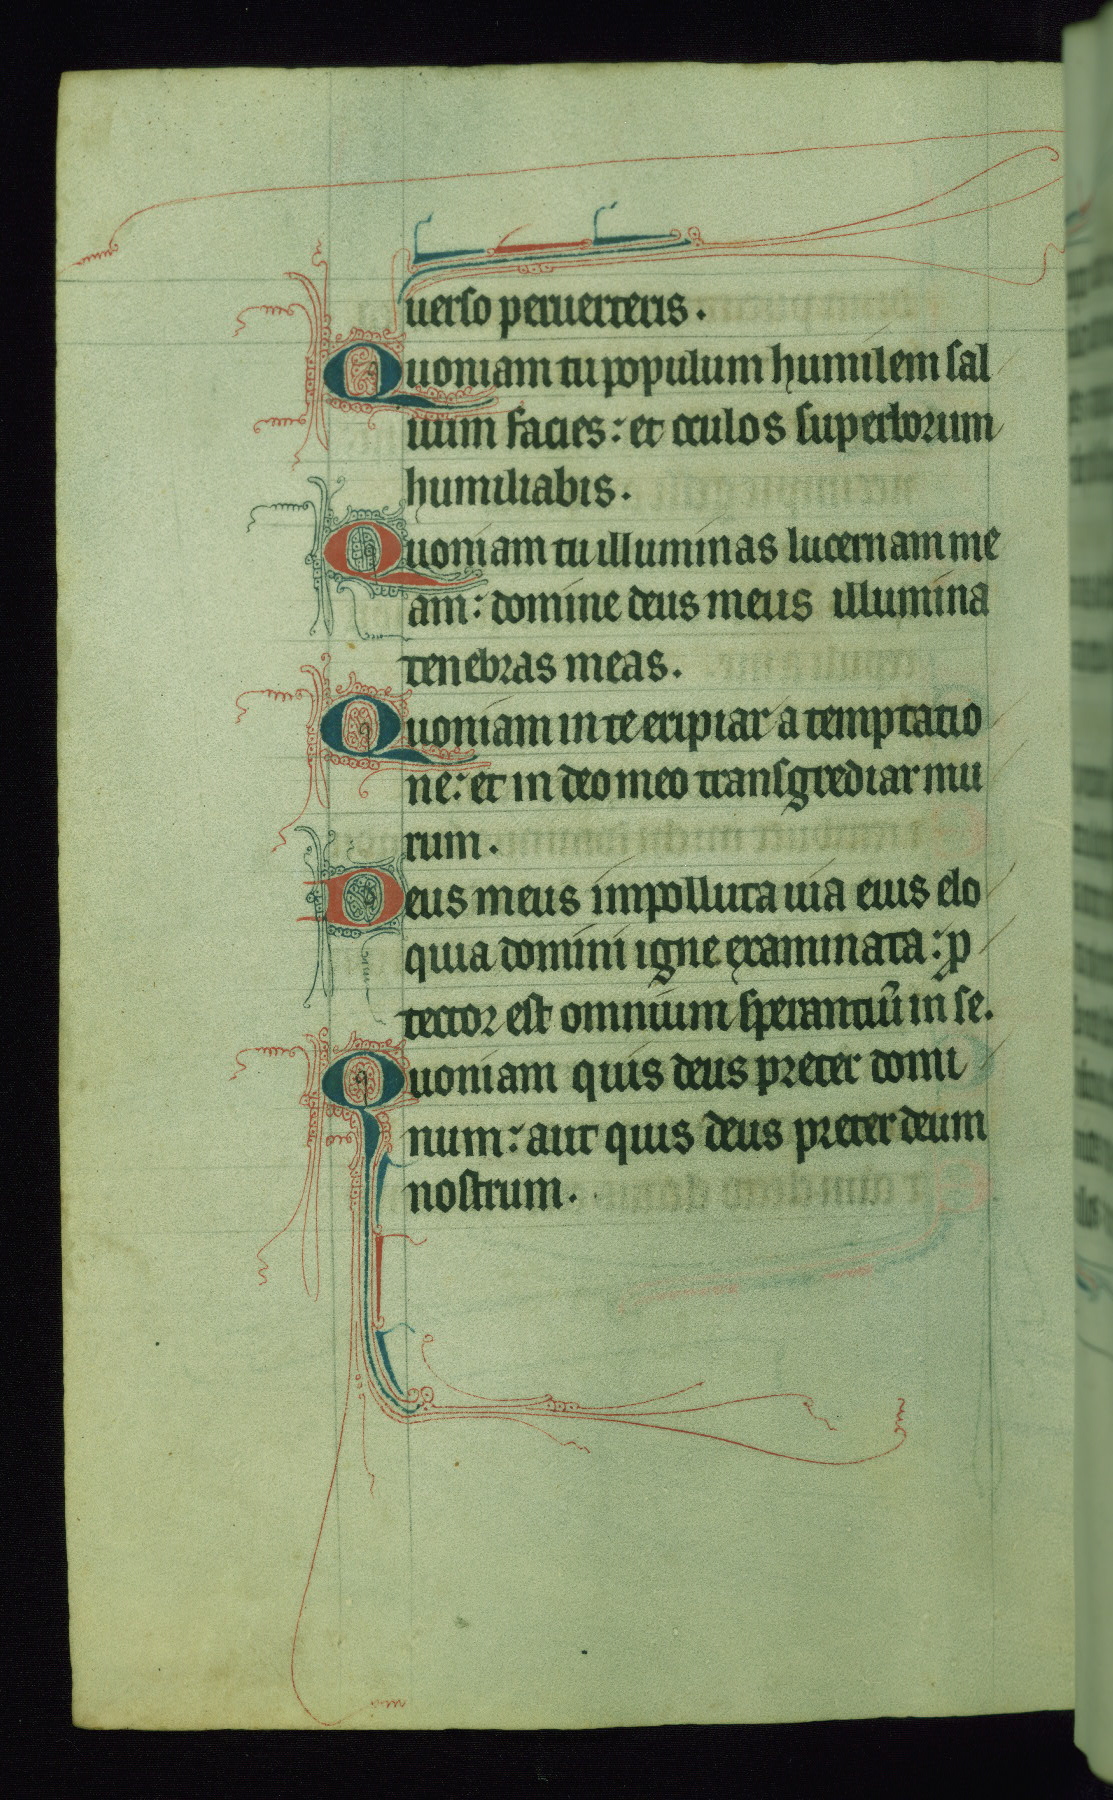 uerso peruerteris.
Quoniam tu populum humilem sal
uum facies: et oculos superborum
humiliabis.
Quoniam tu illuminas lucernam me
am: domine deus meus illumina
tenebras meas.
Quoniam in te eripiar a temptatio
ne: et in deo meo transgrediar mu
rum.
Deus meus impolluta uia eius elo
quia domini igne examinata: ꝓ
tector est omnium sperantiū in se.
Quoniam quis deus preter domi
num: aut quis deus preter deum
nostrum.